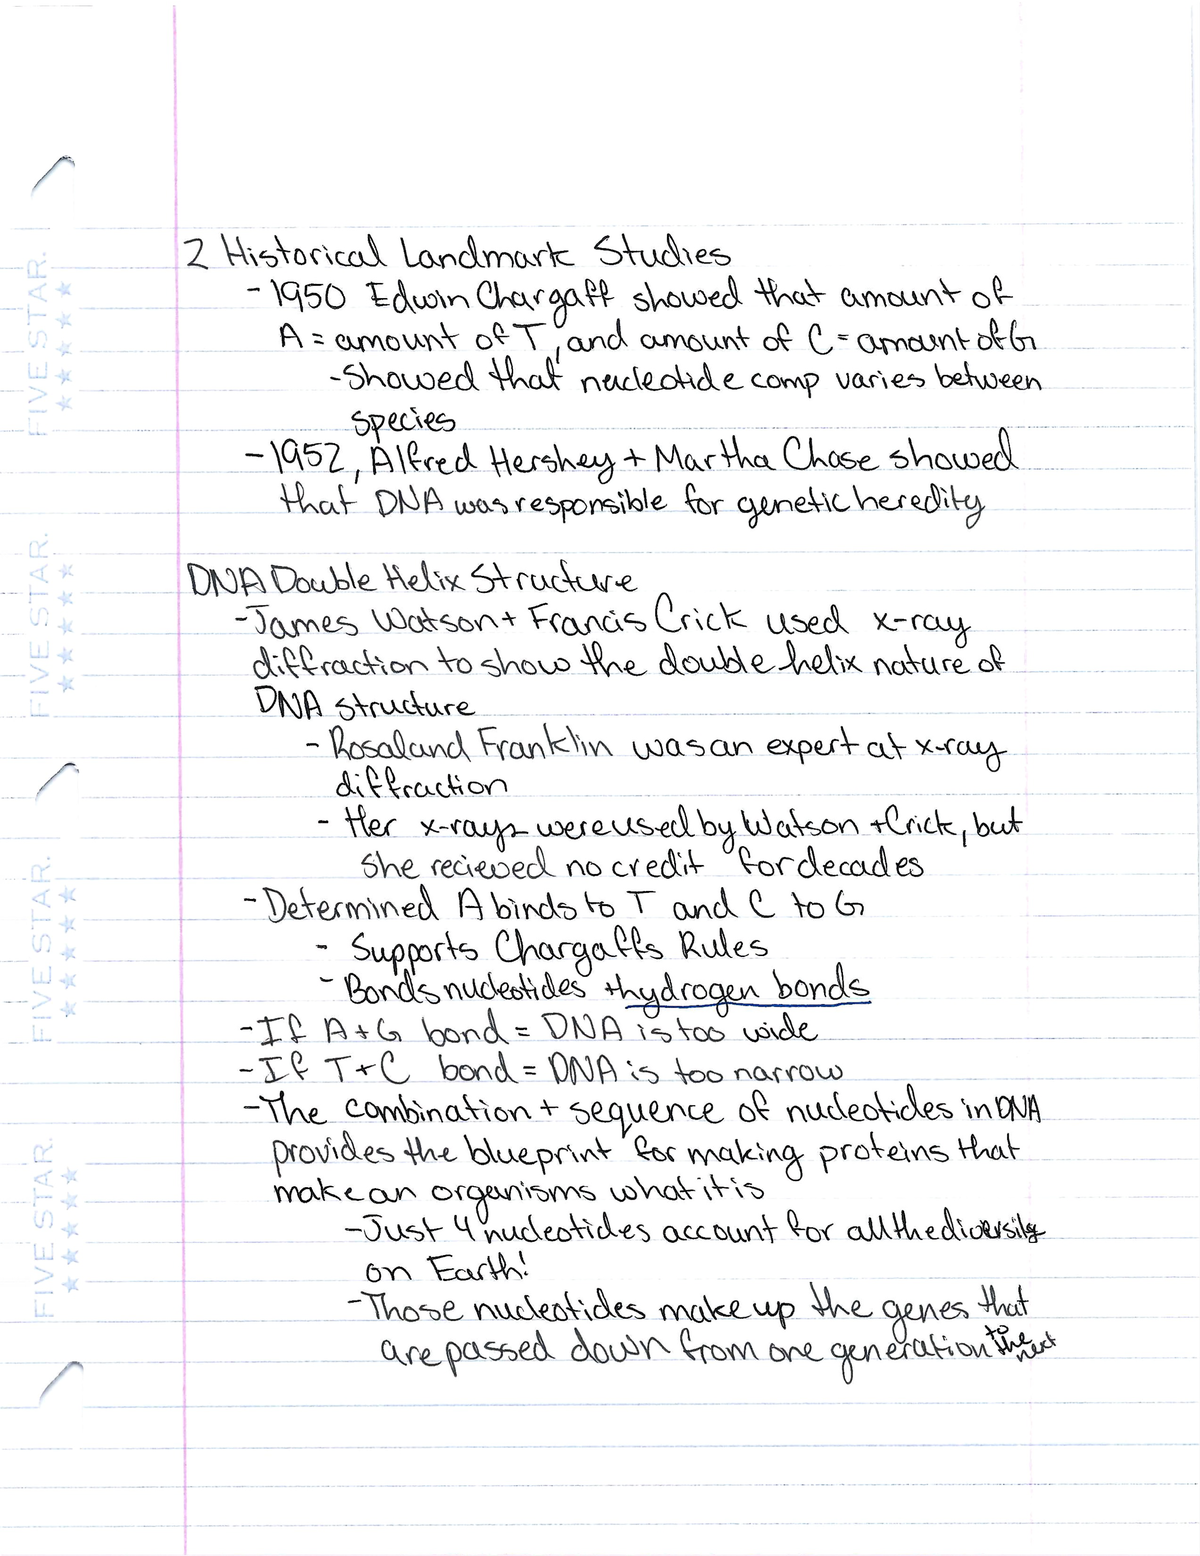 2 Historical Landmark Studies
- 1950 Edwin Chargaff showed that amount of
A = amount of T, and amount of C = amount of G
- Showed that nucleotide comp varies between
species
- 1952, Alfred Hershey + Martha Chase showed
that DNA was responsible for genetic heredity
DNA Double Helix Structure
- James Watson + Francis Crick used x-ray
diffraction to show the double helix nature of
DNA structure
- Rosaland Franklin was an expert at x-ray
diffraction
- Her x-rays were used by Watson + Crick, but
she recieved no credit for decades
- Determined A binds to T and C to G
- Supports Chargaffs Rules
- Bonds nucleotides + hydrogen bonds
- If A + G bond = DNA is too wide
- If T + C bond = DNA is too narrow
- The combination + sequence of nucleotides in DNA
provides the blueprint for making proteins that
make an organisms what it is
- Just 4 nucleotides account for all the diversity
on Earth!
- Those nucleotides make up the genes that
are passed down from one generation to the next
FIVE STAR.
FIVE STAR.
FIVE STAR.
FIVE STAR.